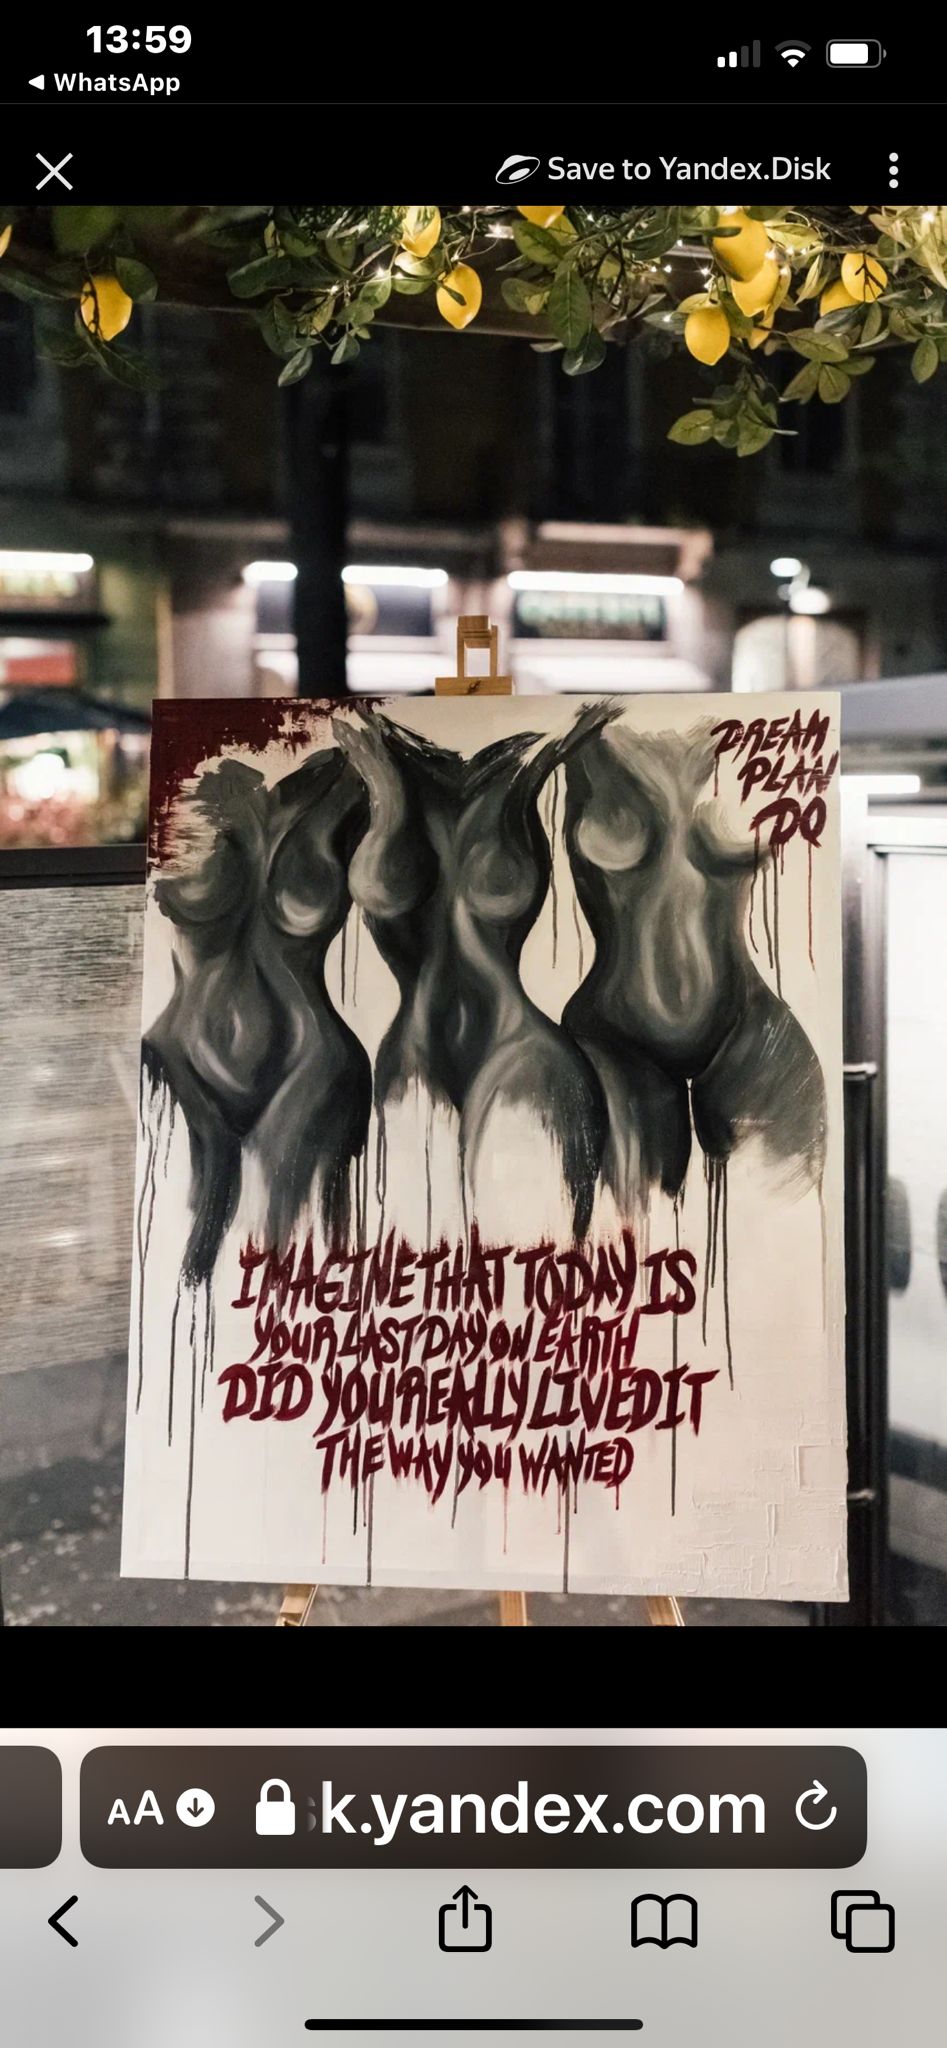 13:59
WhatsApp
Save to Yandex.Disk
DREAM
PLAN
DO
IMAGINE THAT TODAY IS
YOUR LAST DAY ON EARTH
DID YOU REALLY LIVED IT
THE WAY YOU WANTED
AA
k.yandex.com